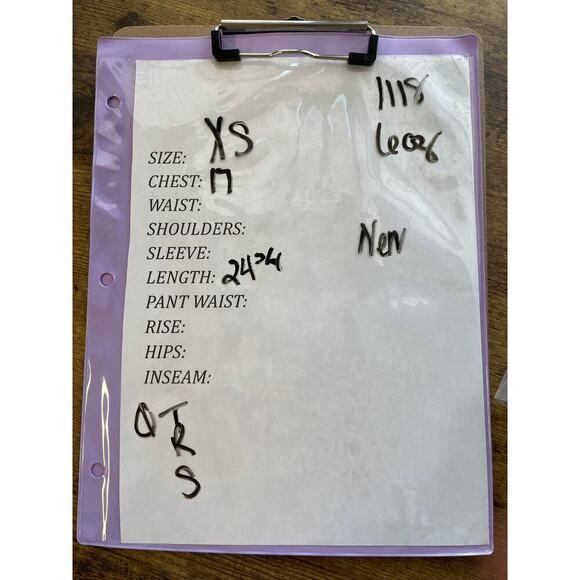 1118
SIZE: XS
CHEST: 17
WAIST:
SHOULDERS:
New
SLEEVE:
LENGTH: 24
PANT WAIST:
RISE:
HIPS:
INSEAM:
T
R
S